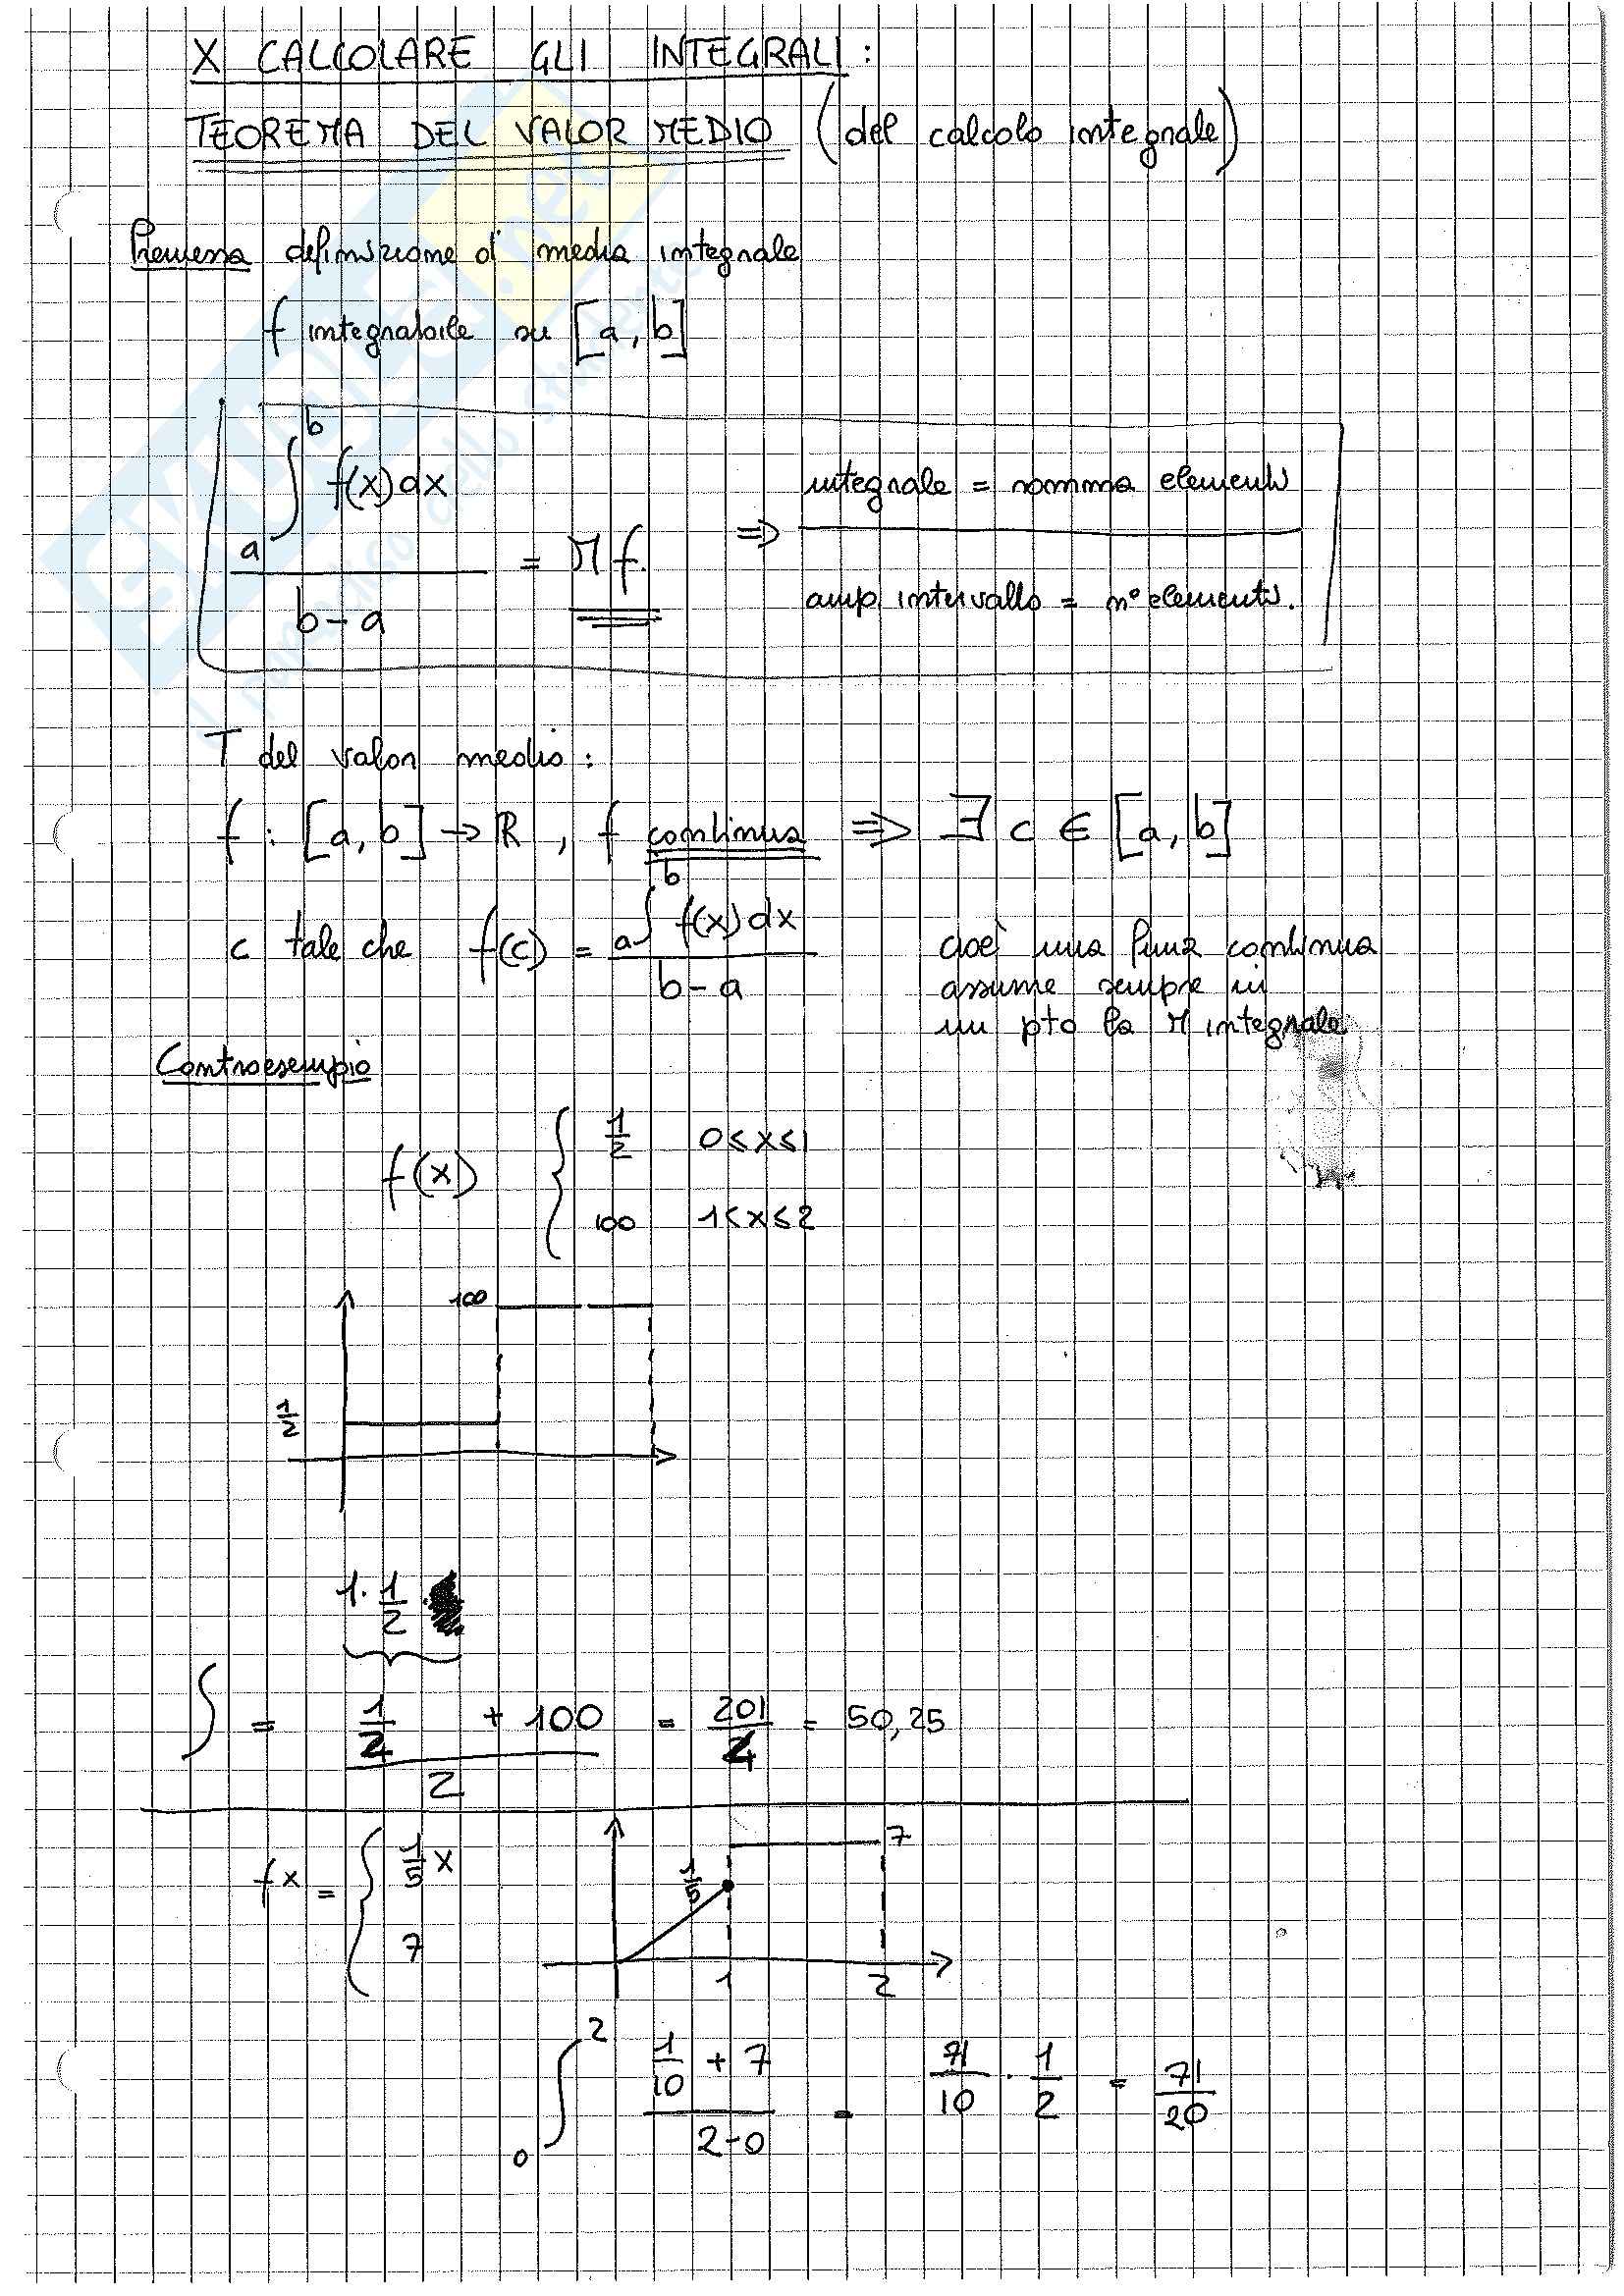 X CALCOLARE GLI INTEGRALI:
TEOREMA DEL VALOR MEDIO (del calcolo integrale)
Premessa definizione di media integrale
f integrabile su [a, b]
∫ₐᵇ f(x)dx / (b - a) = M f. ⇒ integrale = somma elementi / amp. intervallo = n° elementi.
T del valor medio:
f : [a, b] → ℝ , f continua ⇒ ∃ c ∈ [a, b]
c tale che f(c) = ∫ₐᵇ f(x)dx / (b - a)
cioè una funz continua
assume sempre in
un pto la M integrale
Controesempio
f(x) {
1/2 0≤x≤1
100 1<x≤2
100
1/2
1 · 1/2 ·
∫ = (1/2 + 100) / 2 = 201/4 = 50,25
fx = {
1/5 x
7
7
1/5
1 2
∫₀² (1/10 + 7) / (2-0) = 71/10 · 1/2 = 71/20